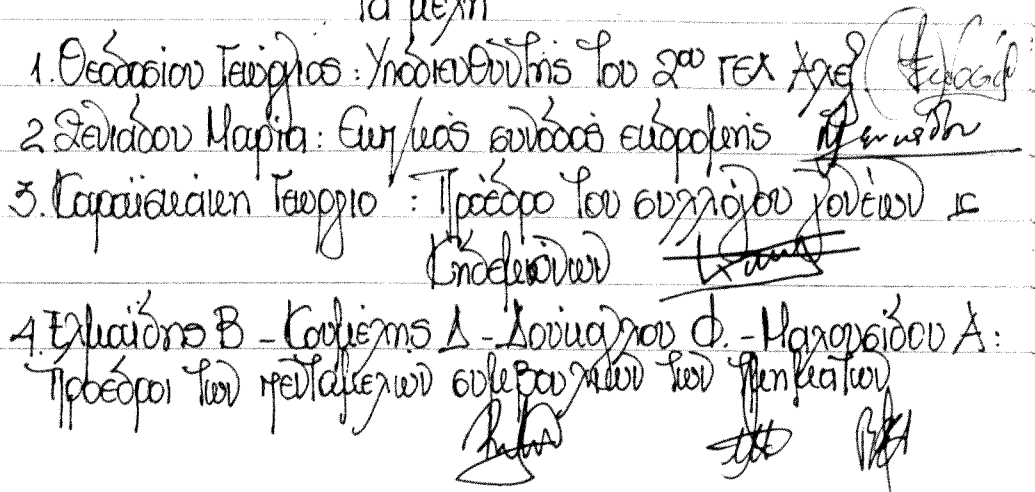 Τα μέλη
1. Θεοδοσίου Γεώργιος: Υποδιευθυντής του 2ου ΓΕΛ Αλεξ
2. Ζελιάδου Μαρία: Εκπ/κός συνοδός εκδρομής
3. Καραϊσκάκη Γεώργιο: Πρόεδρο του συλλόγου γονέων κ
Κηδεμόνων
4. Ελμαΐδης Β - Κουμέλης Δ - Δούκαλλου Φ. - Μαλουσίδου Α:
Πρόεδροι των πενταμελών συμβουλίων των τμημάτων